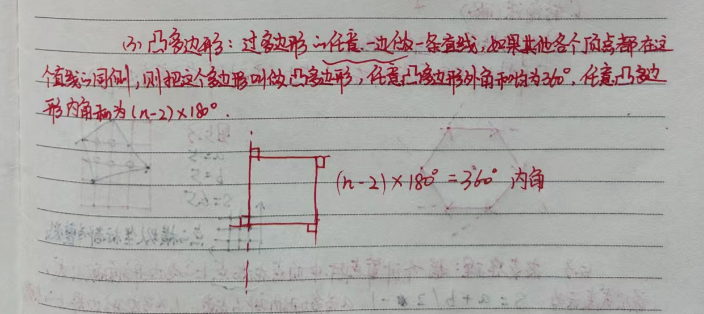 (3) 凸多边形：过多边形的任意一边做一条直线，如果其他各个顶点都在这
个直线的同侧，则把这个多边形叫做凸多边形，任意凸多边形外角和均为360°，任意凸多边
形内角和为(n-2)×180°.
(n-2)×180°=360° 内角